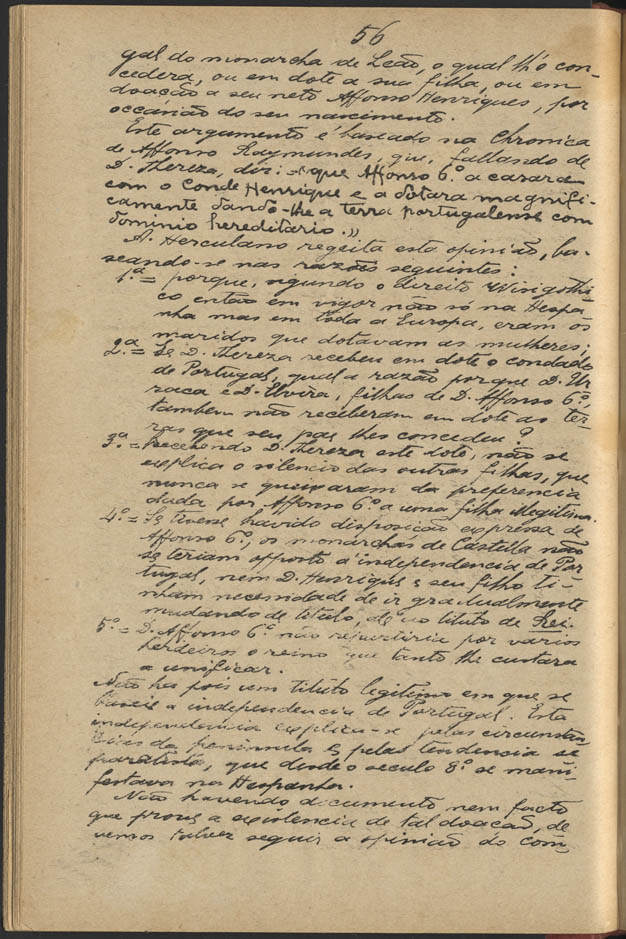 56
gal do monarcha de Leão, o qual lh'o con-
cedera, ou em dote a sua filha, ou em
doação a seu neto Affonso Henriques, por
occasião do seu nascimento.
Este argumento é baseado na Chronica
de Affonso Raymundes, que, fallando de
D. Thereza, diz: =«que Affonso 6.º a casara
com o Conde Henrique e a dotara magnifi-
camente dando-lhe a terra portugalense com
dominio hereditario.»
A. Herculano regeita esta opinião, ba-
seando-se nas razões seguintes:
1.ª = porque, segundo o Direito Wisigothi-
co então em vigor não só na Hespa-
nha mas em toda a Europa, eram os
maridos que dotavam as mulheres;
2.ª = Se D. Thereza recebeu em dote o condado
de Portugal, qual a razão porque D. Ur-
raca e D. Elvira, filhas de D. Affonso 6.º,
tambem não receberam em dote as ter-
ras que seu pae lhes concedeu?
3.ª = Recebendo D. Thereza este dote, não se
explica o silencio das outras filhas, que
nunca se queixaram da preferencia
dada por Affonso 6.º a uma filha illegitima.
4.º = Se tivesse havido disposição expressa de
Affonso 6.º, os monarchas de Castella não
se teriam opposto á independencia de Por
tugal, nem D. Henrique e seu filho ti-
nham necessidade de ir gradualmente
mudando de titulo, até ao titulo de Rei.
5.º = D. Affonso 6.º não repartiria por varios
herdeiros o reino que tanto lhe custara
a unificar.
Não ha pois um titulo legitimo em que se
baseie a independencia de Portugal. Esta
independencia explica-se pelas circumstan
cias da peninsula e pelas tendencia se
paratista, que desde o seculo 8.º se mani
festava na Hespanha.
Não havendo documento nem facto
que prove a existencia de tal doação, de
vemos talvez seguir a opinião do com-